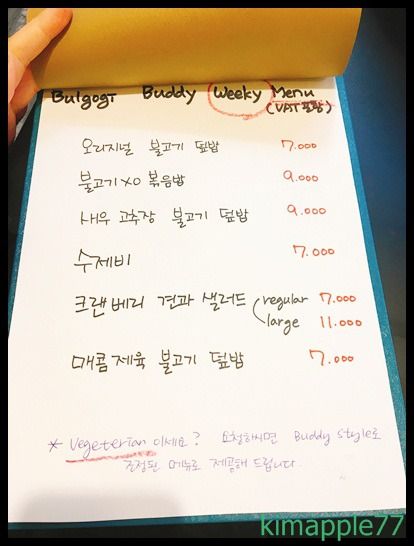 Bulgogi Buddy Weeky Menu
(VAT포함)
오리지널 불고기 덮밥 7.000
불고기 XO 볶음밥 9.000
새우 고추장 불고기 덮밥 9.000
수제비 7.000
크랜베리 견과 샐러드 regular 7.000
large 11.000
매콤제육 불고기 덮밥 7.000
* Vegeterian 이세요? 요청하시면 Buddy Style로
조정된 메뉴로 제공해 드립니다.
kimapple77